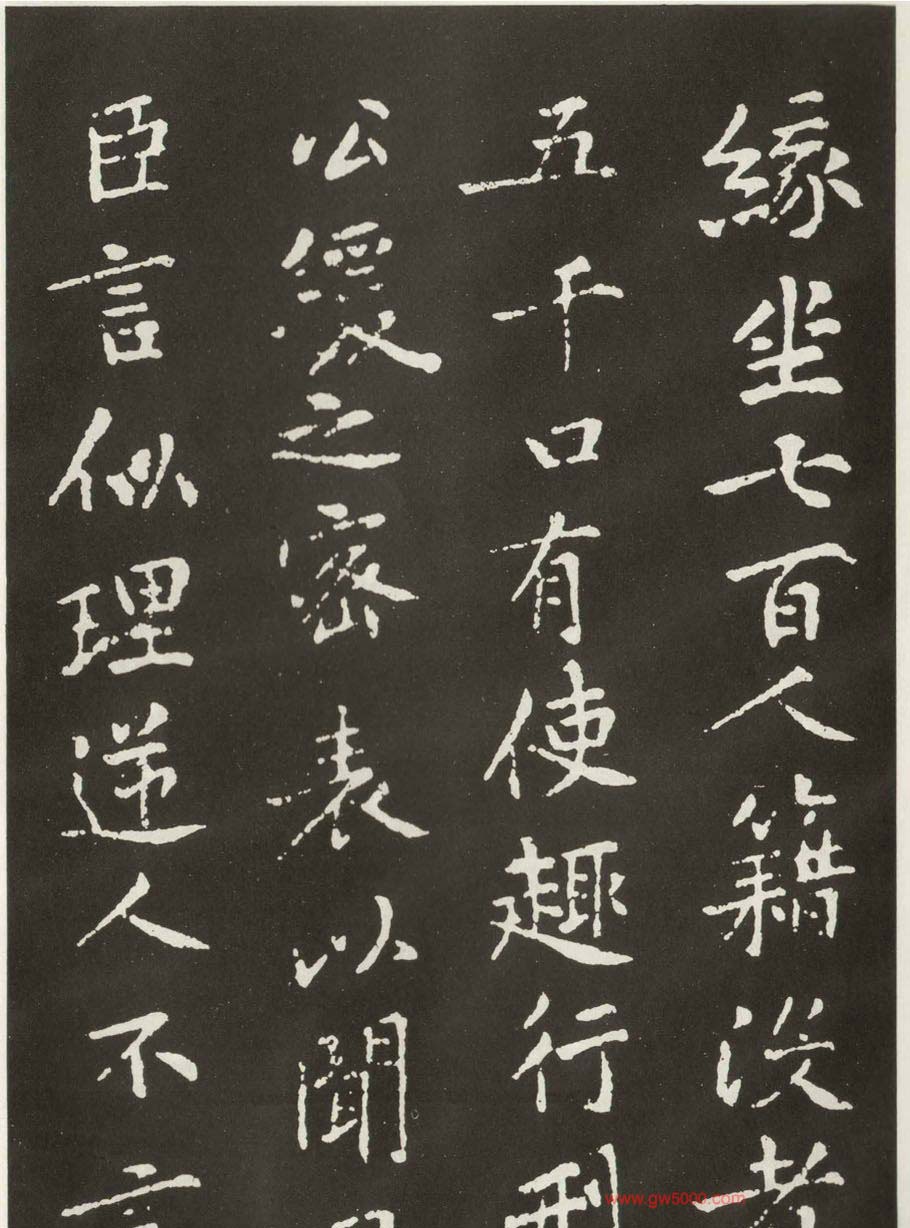 緣坐七百人籍没者
五千口有使趣行刑
公緩之密表以聞
臣言似理逆人不言
www.gw5000.com